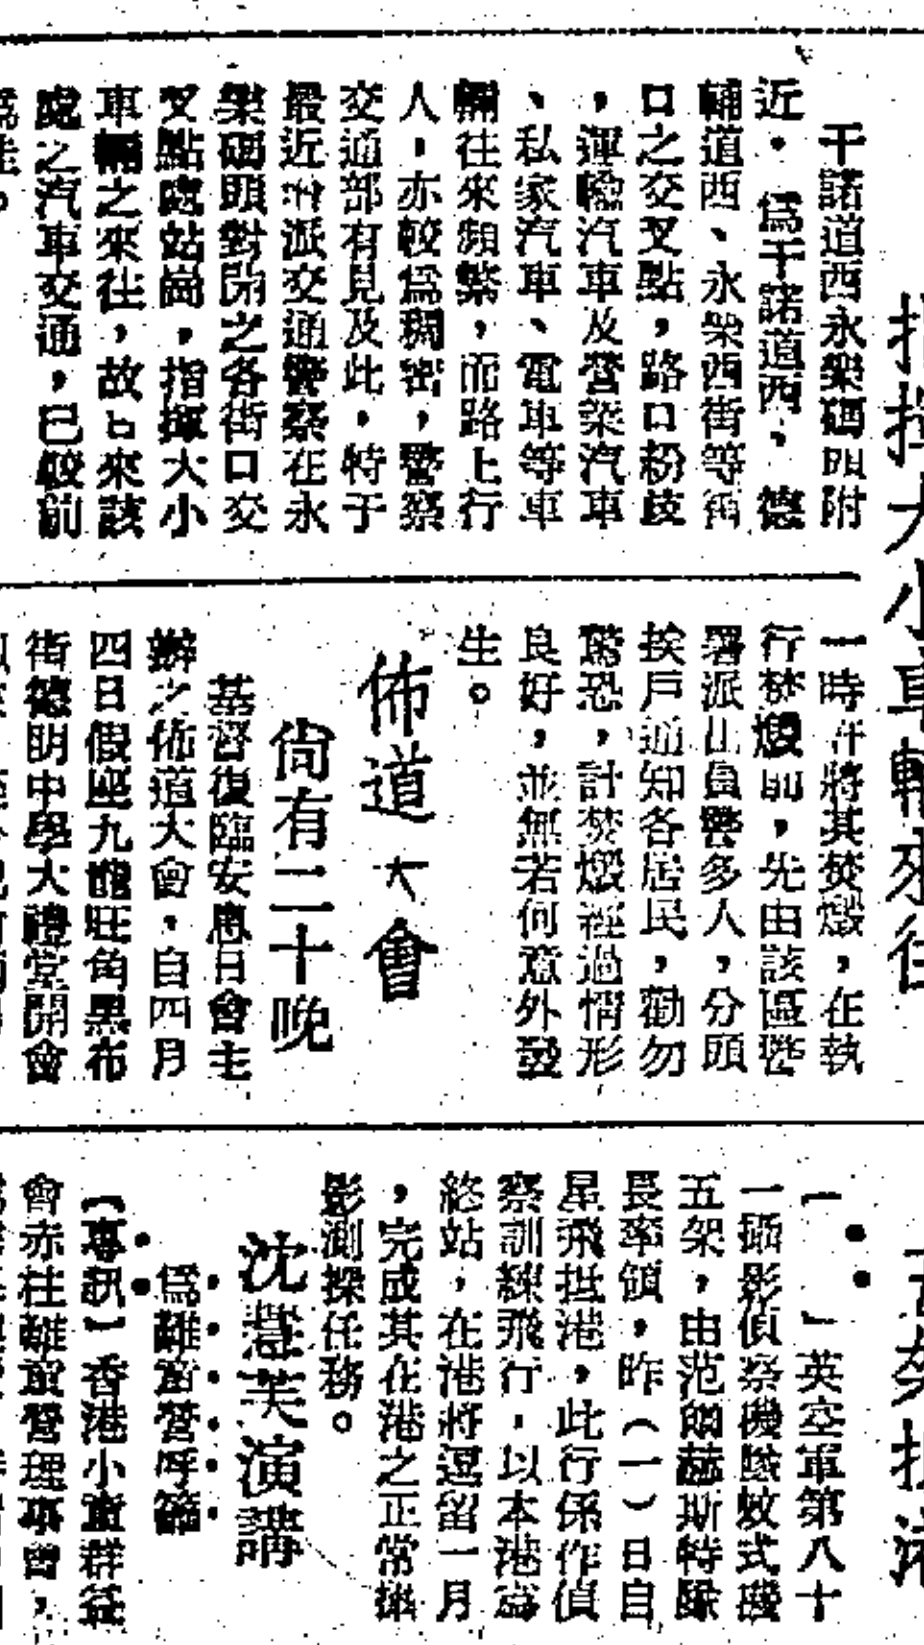 指揮大小車輛來往
干諾道西永樂碼頭附
近。爲干諾道西,德
輔道西、永樂西街等街
口之交叉點,路口紛歧
,運輸汽車及營業汽車
、私家汽車、電車等車
輛往來頻繁,而路上行
人,亦較爲稠密,警察
交通部有見及此,特于
最近增派交通警察在永
樂碼頭對開之各街口交
叉點處站崗,指揮大小
車輛之來往,故日來該
處之汽車交通,已較前
爲佳。
一時許將其焚燬,在執
行焚燬前,先由該區警
署派出員警多人,分頭
挨戶通知各居民,勸勿
驚恐,計焚燬經過情形
良好,並無若何意外發
生。
佈道大會
尙有二十晚
基督復臨安息日會主
辦之佈道大會,自四月
四日假座九龍旺角黑布
街德明中學大禮堂開會
架抵港
【 】英空軍第八十
一攝影偵察機隊蚊式機
五架,由范爾赫斯特隊
長率領,昨(一)日自
星飛抵港,此行係作偵
察訓練飛行,以本港爲
終站,在港將逗留一月
,完成其在港之正常攝
影測探任務。
沈慧芙演講
爲難童營呼籲
【專訊】香港小童群益
會赤柱難童營理事會,